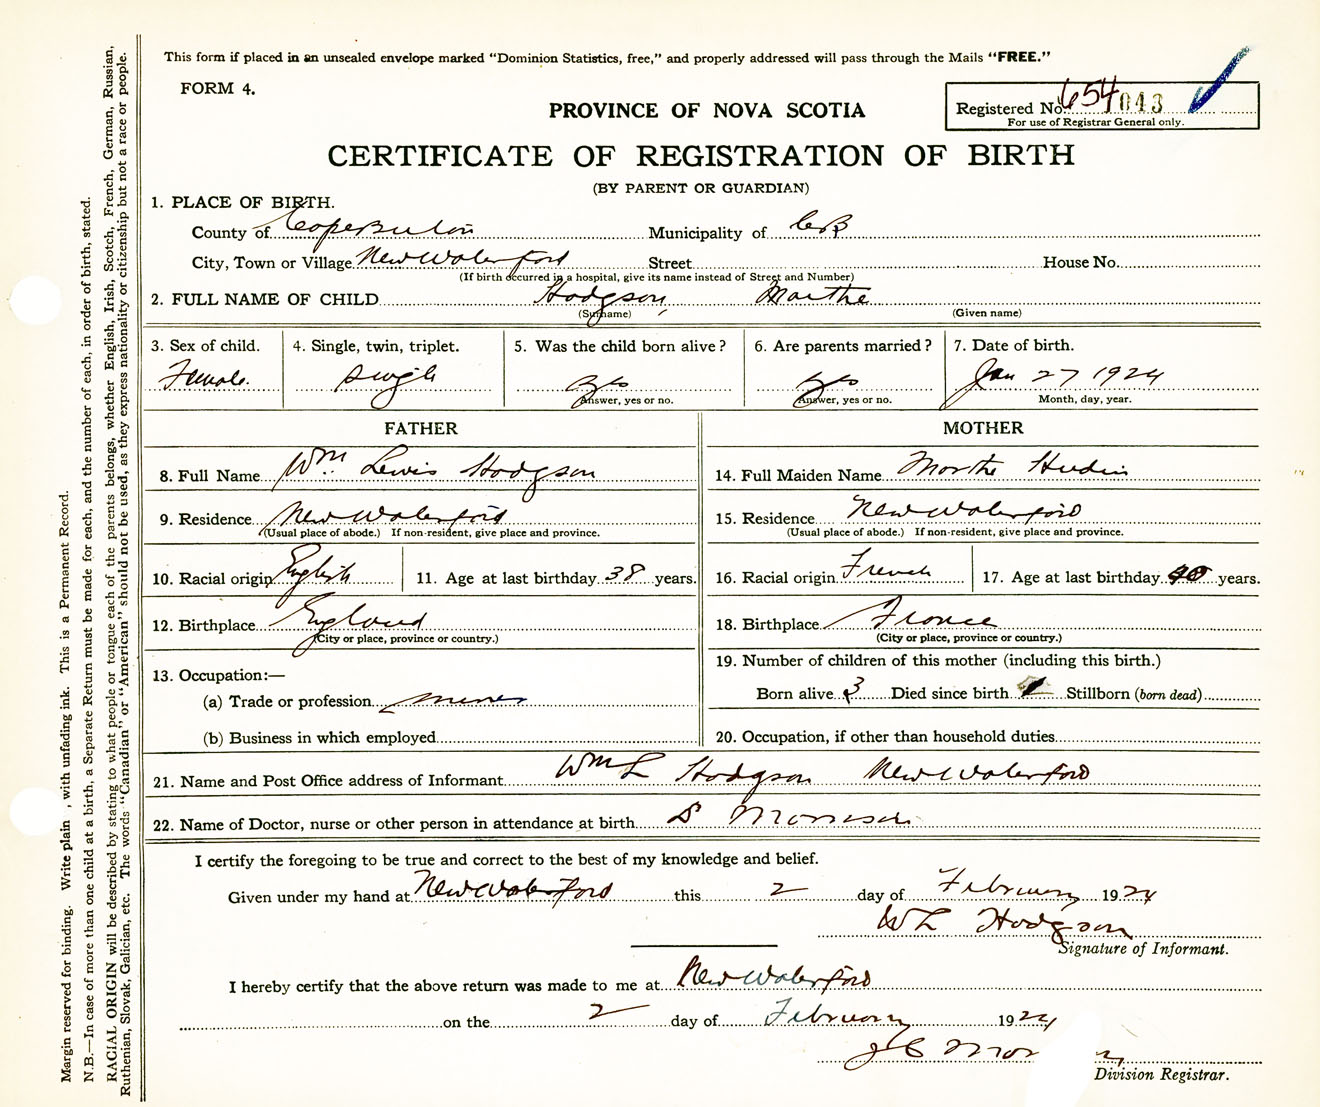 This form if placed in an unsealed envelope marked "Dominion Statistics, free," and properly addressed will pass through the Mails "FREE."
FORM 4.
Registered No. 654043
For use of Registrar General only.
PROVINCE OF NOVA SCOTIA
CERTIFICATE OF REGISTRATION OF BIRTH
(BY PARENT OR GUARDIAN)
1. PLACE OF BIRTH.
County of Cape Breton Municipality of C B
City, Town or Village New Waterford Street House No.
(If birth occurred in a hospital, give its name instead of Street and Number)
2. FULL NAME OF CHILD Hodgson, Marthe
(Surname) (Given name)
3. Sex of child. 4. Single, twin, triplet. 5. Was the child born alive? 6. Are parents married? 7. Date of birth.
Female. Single Yes Yes Jan 27 1924
Answer, yes or no. Answer, yes or no. Month, day, year.
FATHER MOTHER
8. Full Name Wm. Lewis Hodgson 14. Full Maiden Name Marthe
9. Residence New Waterford 15. Residence New Waterford
(Usual place of abode.) If non-resident, give place and province. (Usual place of abode.) If non-resident, give place and province.
10. Racial origin English 11. Age at last birthday 38 years. 16. Racial origin French 17. Age at last birthday years.
12. Birthplace England 18. Birthplace France
(City or place, province or country.) (City or place, province or country.)
13. Occupation:— 19. Number of children of this mother (including this birth.)
(a) Trade or profession miner Born alive 3 Died since birth Stillborn (born dead)
(b) Business in which employed 20. Occupation, if other than household duties
21. Name and Post Office address of Informant Wm L Hodgson New Waterford
22. Name of Doctor, nurse or other person in attendance at birth Morrison
I certify the foregoing to be true and correct to the best of my knowledge and belief.
Given under my hand at New Waterford this 2 day of February 1924
W L Hodgson
Signature of Informant.
I hereby certify that the above return was made to me at New Waterford
on the 2 day of February 1924
J C
Division Registrar.
Margin reserved for binding. Write plain , with unfading ink. This is a Permanent Record.
N.B.—In case of more than one child at a birth, a Separate Return must be made for each, and the number of each, in order of birth, stated.
RACIAL ORIGIN will be described by stating to what people or tongue each of the parents belongs, whether English, Irish, Scotch, French, German, Russian,
Ruthenian, Slovak, Galician, etc. The words "Canadian" or "American" should not be used, as they express nationality or citizenship but not a race or people.